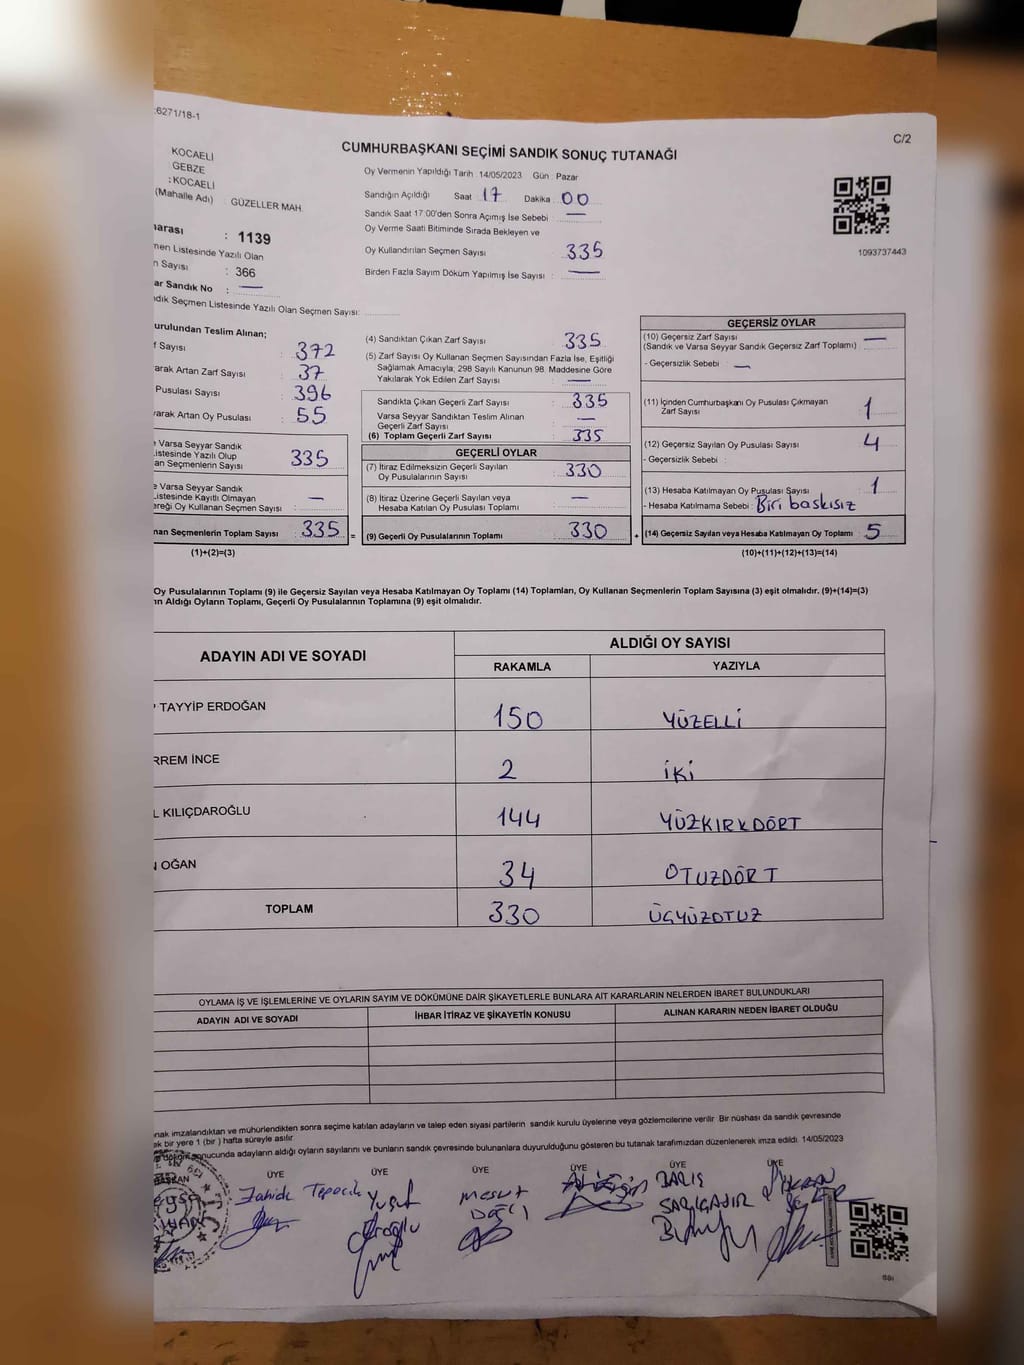 :6271/18-1
C/2
CUMHURBAŞKANI SEÇİMİ SANDIK SONUÇ TUTANAĞI
KOCAELİ
GEBZE
: KOCAELİ
(Mahalle Adı) : GÜZELLER MAH.
Oy Vermenin Yapıldığı Tarih : 14/05/2023 Gün : Pazar
Sandığın Açıldığı Saat 17 Dakika 00
Sandık Saat 17:00'den Sonra Açımış İse Sebebi : —
Oy Verme Saati Bitiminde Sırada Bekleyen ve
Oy Kullandırılan Seçmen Sayısı 335
Birden Fazla Sayım Döküm Yapılmış İse Sayısı : —
1093737443
arası : 1139
men Listesinde Yazılı Olan
n Sayısı : 366
ar Sandık No : —
dık Seçmen Listesinde Yazılı Olan Seçmen Sayısı:
urulundan Teslim Alınan;
f Sayısı : 372
arak Artan Zarf Sayısı : 37
Pusulası Sayısı : 396
arak Artan Oy Pusulası : 55
e Varsa Seyyar Sandık
Listesinde Yazılı Olup
an Seçmenlerin Sayısı 335
e Varsa Seyyar Sandık
Listesinde Kayıtlı Olmayan
ereği Oy Kullanan Seçmen Sayısı : —
nan Seçmenlerin Toplam Sayısı : 335 =
(1)+(2)=(3)
(4) Sandıktan Çıkan Zarf Sayısı : 335
(5) Zarf Sayısı Oy Kullanan Seçmen Sayısından Fazla İse, Eşitliği
Sağlamak Amacıyla; 298 Sayılı Kanunun 98. Maddesine Göre
Yakılarak Yok Edilen Zarf Sayısı : —
Sandıkta Çıkan Geçerli Zarf Sayısı : 335
Varsa Seyyar Sandıktan Teslim Alınan
Geçerli Zarf Sayısı : —
(6) Toplam Geçerli Zarf Sayısı : 335
GEÇERLİ OYLAR
(7) İtiraz Edilmeksizin Geçerli Sayılan
Oy Pusulalarının Sayısı : 330
(8) İtiraz Üzerine Geçerli Sayılan veya
Hesaba Katılan Oy Pusulası Toplamı : —
(9) Geçerli Oy Pusulalarının Toplamı : 330 +
GEÇERSİZ OYLAR
(10) Geçersiz Zarf Sayısı
(Sandık ve Varsa Seyyar Sandık Geçersiz Zarf Toplamı) : —
- Geçersizlik Sebebi : —
(11) İçinden Cumhurbaşkanı Oy Pusulası Çıkmayan
Zarf Sayısı : 1
(12) Geçersiz Sayılan Oy Pusulası Sayısı : 4
- Geçersizlik Sebebi :
(13) Hesaba Katılmayan Oy Pusulası Sayısı : 1
- Hesaba Katılmama Sebebi : Biri baskısız
(14) Geçersiz Sayılan veya Hesaba Katılmayan Oy Toplamı : 5
(10)+(11)+(12)+(13)=(14)
Oy Pusulalarının Toplamı (9) ile Geçersiz Sayılan veya Hesaba Katılmayan Oy Toplamı (14) Toplamları, Oy Kullanan Seçmenlerin Toplam Sayısına (3) eşit olmalıdır. (9)+(14)=(3)
ın Aldığı Oyların Toplamı, Geçerli Oy Pusulalarının Toplamına (9) eşit olmalıdır.
ADAYIN ADI VE SOYADI
ALDIĞI OY SAYISI
RAKAMLA YAZIYLA
TAYYİP ERDOĞAN 150 YÜZELLİ
RREM İNCE 2 İKİ
L KILIÇDAROĞLU 144 YÜZKIRKDÖRT
OĞAN 34 OTUZDÖRT
TOPLAM 330 ÜÇYÜZOTUZ
OYLAMA İŞ VE İŞLEMLERİNE VE OYLARIN SAYIM VE DÖKÜMÜNE DAİR ŞİKAYETLERLE BUNLARA AİT KARARLARIN NELERDEN İBARET BULUNDUKLARI
ADAYIN ADI VE SOYADI İHBAR İTİRAZ VE ŞİKAYETİN KONUSU ALINAN KARARIN NEDEN İBARET OLDUĞU
nak imzalandıktan ve mühürlendikten sonra seçime katılan adayların ve talep eden siyasi partilerin sandık kurulu üyelerine veya gözlemcilerine verilir. Bir nüshası da sandık çevresinde
ek bir yere 1 (bir ) hafta süreyle asılır
onucunda adayların aldığı oyların sayılarını ve bunların sandık çevresinde bulunanlara duyurulduğunu gösteren bu tutanak tarafımızdan düzenlenerek imza edildi. 14/05/2023
BAŞKAN ÜYE ÜYE ÜYE ÜYE ÜYE ÜYE
Zahide Tepecik
Yusuf
Mesut
DAĞCI
BARIŞ